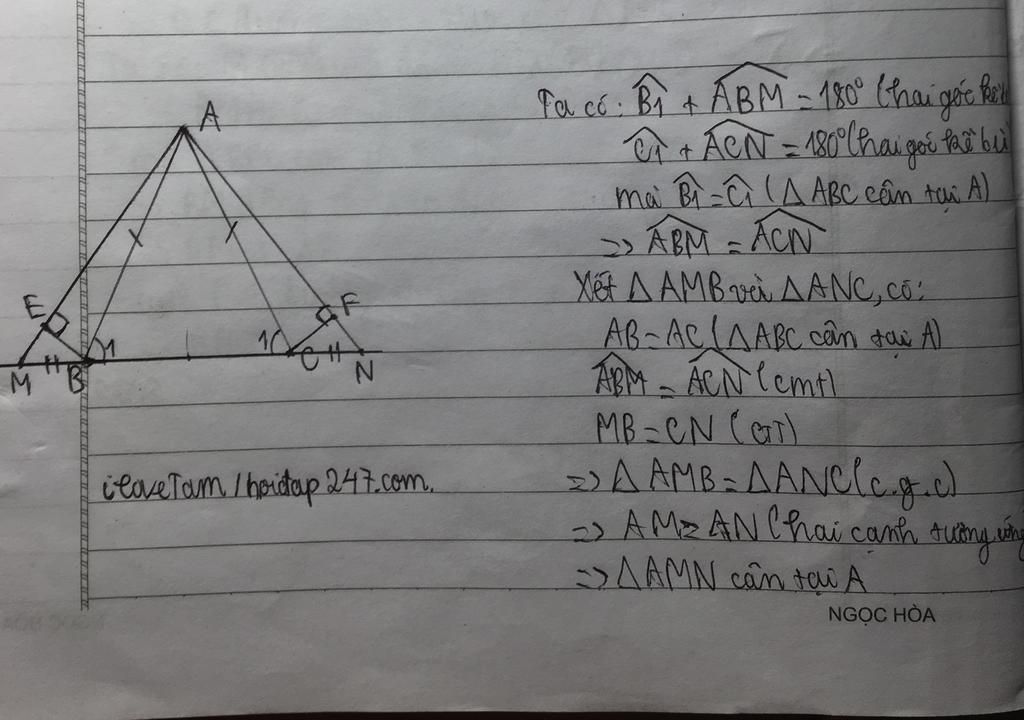 A
E
F
1
1
M
B
C
N
iloveTam/hoidap247.com.
Ta có: B̂1 + ABM̂ = 180° (hai góc kề
Ĉ1 + ACN̂ = 180° (hai góc kề bù
mà B̂1 = Ĉ1 (Δ ABC cân tại A)
=> ABM̂ = ACN̂
Xét Δ AMB và Δ ANC, có:
AB = AC (Δ ABC cân tại A)
ABM̂ = ACN̂ (cmt)
MB = CN (GT)
=> Δ AMB = Δ ANC (c.g.c)
=> AM = AN (hai cạnh tương ứng
=> Δ AMN cân tại A
NGỌC HÒA